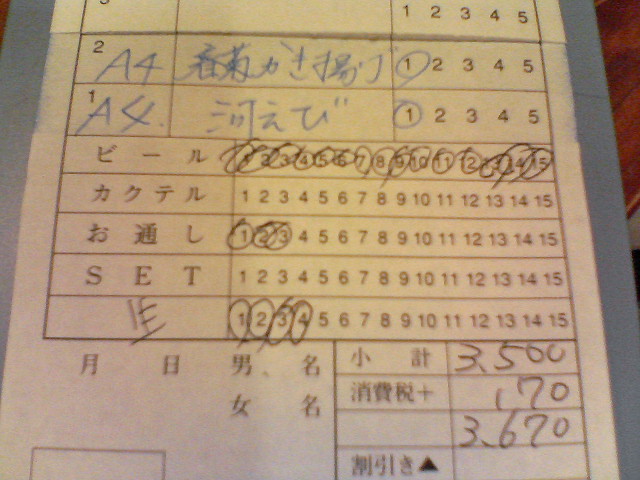 1 2 3 4 5
2 A4 春菊かき揚げ 1 2 3 4 5
1 A4. 河えび 1 2 3 4 5
ビール 1 2 3 4 5 6 7 8 9 10 11 12 13 14 15
カクテル 1 2 3 4 5 6 7 8 9 10 11 12 13 14 15
お通し 1 2 3 4 5 6 7 8 9 10 11 12 13 14 15
SET 1 2 3 4 5 6 7 8 9 10 11 12 13 14 15
1 2 3 4 5 6 7 8 9 10 11 12 13 14 15
月 日 男、 名 小 計 3,500
女 名 消費税+ 170
3,670
割引き▲